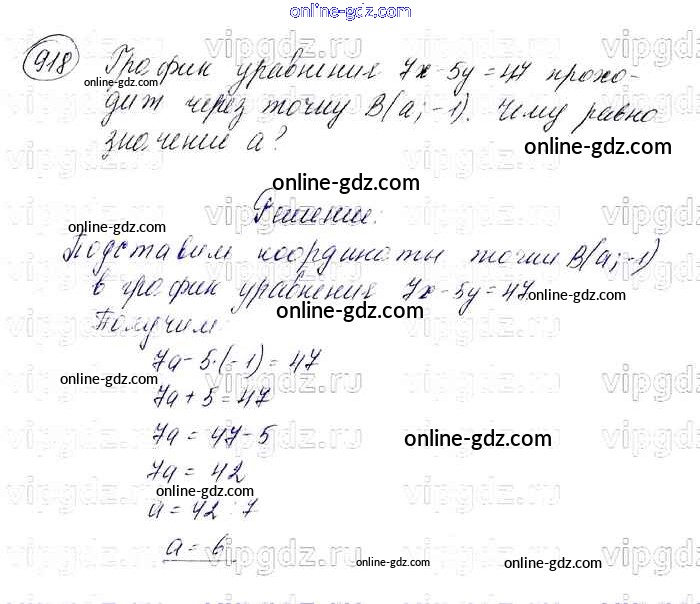 online-gdz.com
918 График уравнения 7x - 5y = 47 прохо-
online-gdz.com
дит через точку B(a; -1). Чему равно
значение a?
online-gdz.com
online-gdz.com
Решение:
online-gdz.com
Подставим координаты точки B(a; -1)
в график уравнения 7x - 5y = 47
online-gdz.com
online-gdz.com
Получим
7a - 5·(-1) = 47
online-gdz.com
7a + 5 = 47
7a = 47 - 5
online-gdz.com
7a = 42
online-gdz.com
a = 42 : 7
a = 6
online-gdz.com
online-gdz.com
vipgdz.ru